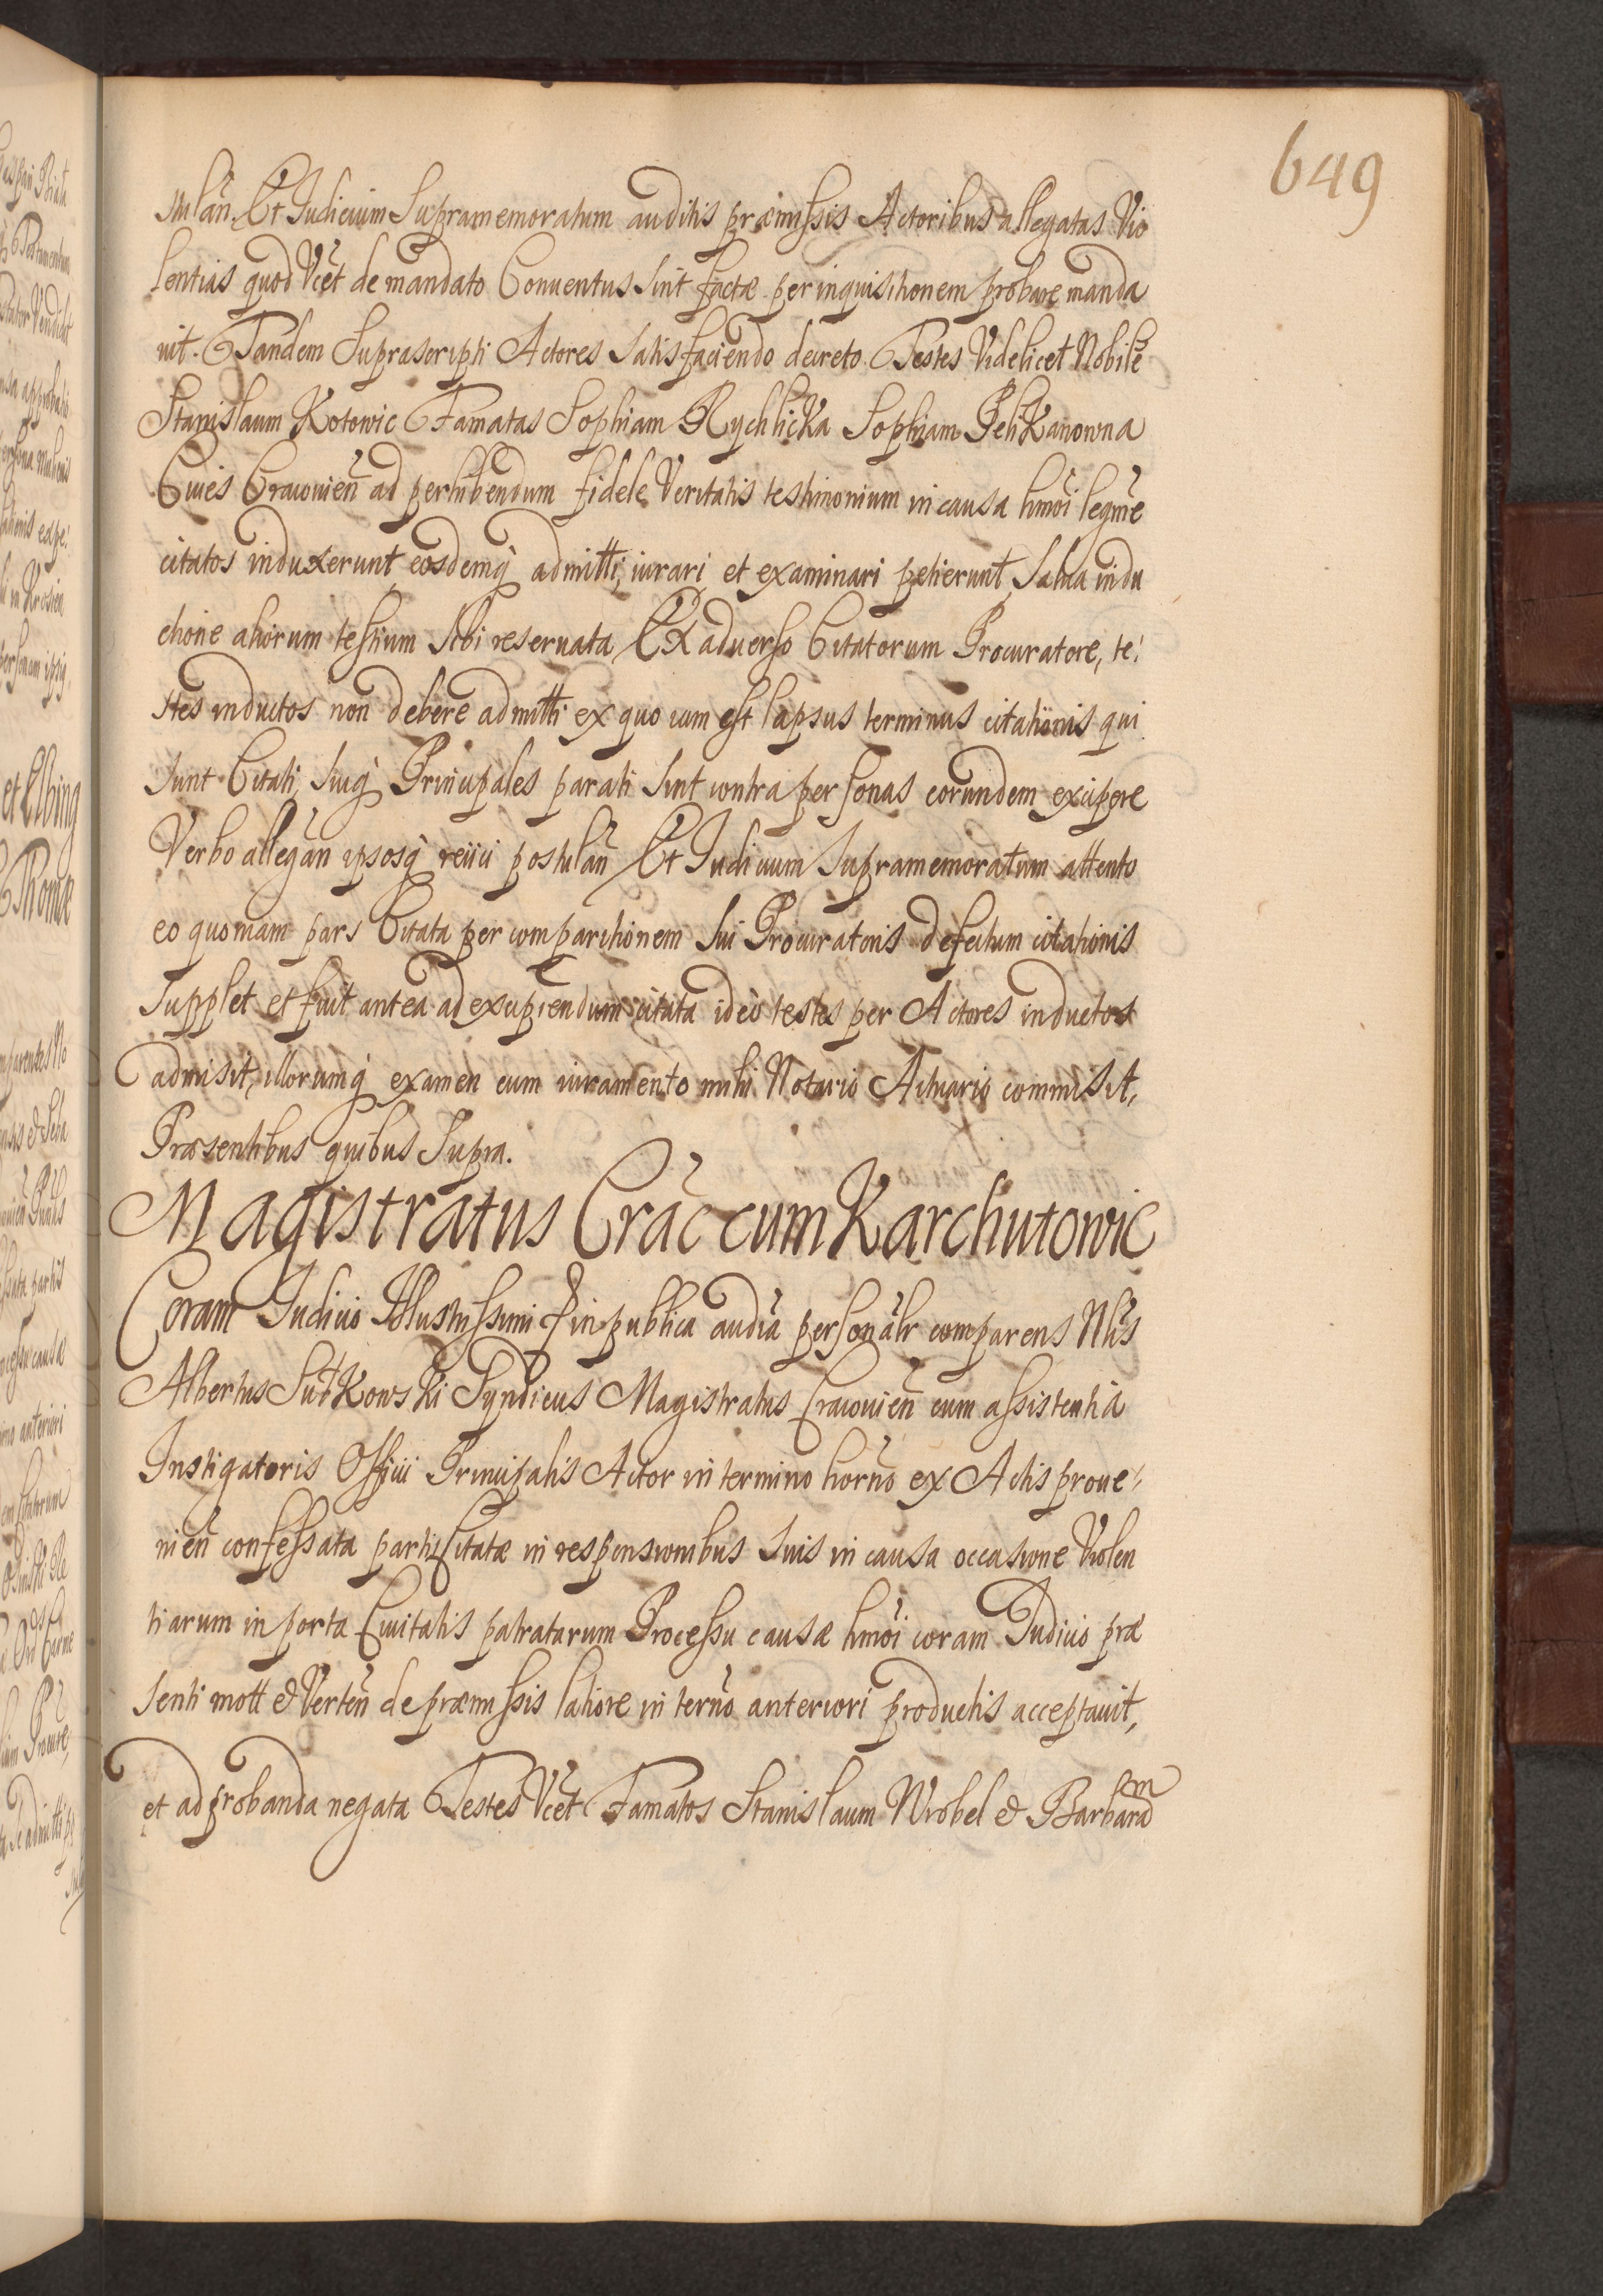 649
stulãn. Et Judicium Supramemoratum auditis præmissis Actoribus allegatas Vio
lentias quod Vcet de mandato Conuentus Sint factæ per inquisitionem probare manda
uit. Tandem Suprascripti Actores Satisfaciendo decreto. Testes Videlicet Nobile
Stanislaum Kotowic Famatas Sophiam Rychlicka Sophiam Pelikanowna
Ciues Cracouien̄ ad perhibendum fidele Veritatis testimonium in causa hmõi legme
citatos induxerunt eosdemq̃ admitti, iurari et examinari petierunt, Salua indu
ctione aliorum testium Sibi reseruata Ex aduerso Citatorum Procuratore, te:
stes inductos non debere admitti ex quo iam est lapsus terminus citationis qui
Sunt Citati, Suiq̃ Principales parati Sint contra personas eorundem excipere
Verbo allegãn ipsosq̃ reiici postulãn Et Judicium Supramemoratum attento
eo quoniam pars Citata per comparitionem Sui Procuratoris defectum citationis
Supplet et fuit antea ad excipiendum citata ideo testes per Actores inductos
admisit, illorumq̃ examen cum iuramento mihi Notario Actuario commisit,
Præsentibus quibus Supra.
Magistratus Crãc cum Karchutowic
Coram Judicio Illustrissimi in publica audiã personãlr comparens Nlis
Albertus Sutkowski Syndicus Magistratus Cracouien̄ cum assistentia
Instigatoris Officii Principalis Actor in termino horno ex Actis proue:
nien̄ confessata partis Citatæ in responsionibus Suis in causa occasione Violen
tiarum in porta Ciuitatis patratarum Processu causæ hmõi coram Judicio præ
senti mott & Verten̄ de præmissis latiore in terno anteriori productis acceptauit,
et ad probanda negata Testes Vcet Famatos Stanislaum Wrobel & Barbaram